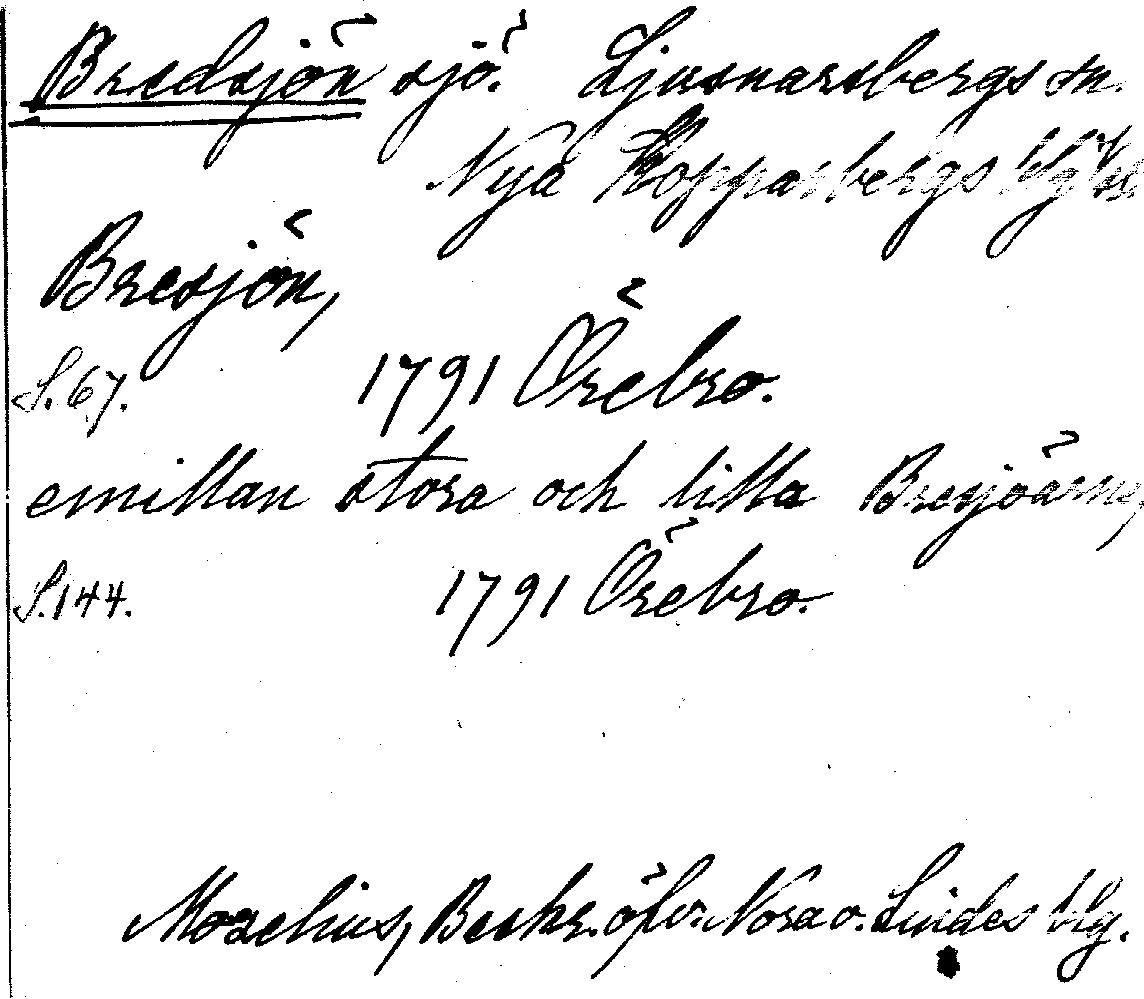 Bredsjön sjö. Ljusnarsbergs sn.
Nya Kopparbergs
Bresjön,
S.67. 1791 Örebro.
emillan stora och lilla Bresjöarne,
S.144. 1791 Örebro.
Mozelius, Beskr. öfv. Nora o. Lindes blg.